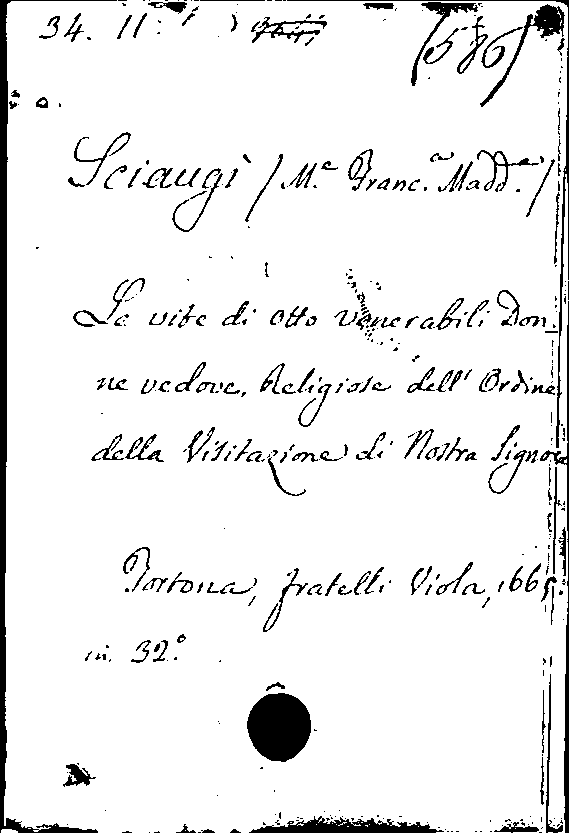 34. 11.
(586)
Sciaugì (M.e Franc.a Madd.a)
Le vite di otto venerabili Don
ne vedove, Religiose dell' Ordine
della Visitazione di Nostra Signora
Tortona, fratelli Viola, 1665.
in 32.°